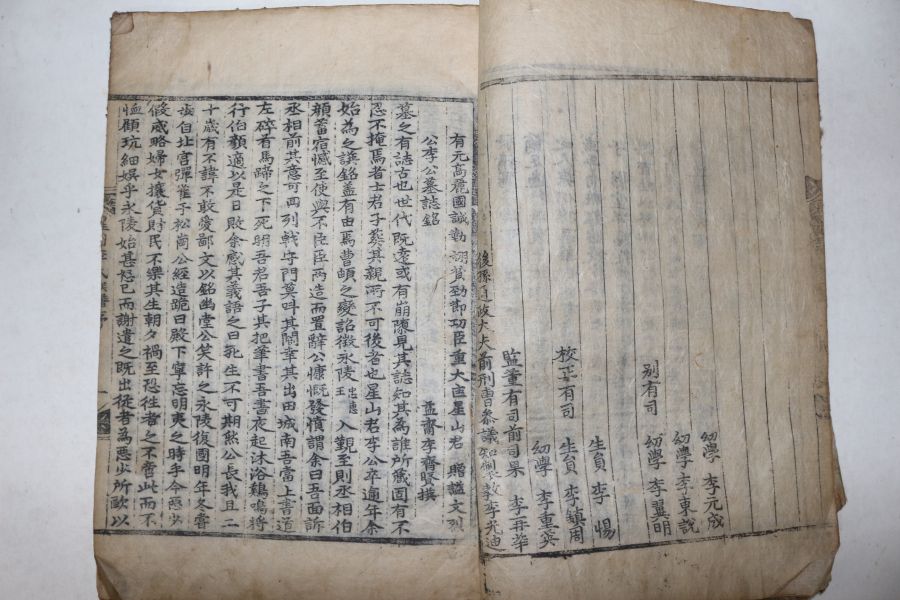 幼學 李元成
幼學 李東說
別有司 幼學 李翼明
生員 李惕
校正有司 生員 李鎮周
幼學 李重奕
監董有司前司果 李再華
後孫通政大夫前刑曹參議知製敎李光迪
有元高麗國誠勤翊贊勁節功臣重大匡星山君 贈謚文烈
公李公墓誌銘
益齋李齊賢撰
墓之有誌古也世代旣遠或有崩隳見其誌知其為誰所藏固有不
忍不掩焉者士君子葬其親所不可後者也星山君李公卒逾年余
始為之譔銘盖有由焉曹頔之變詔徵永陵忠惠王入覲至則丞相伯
顔蓄宿憾至使與不臣臣兩造而置辭公慷慨發憤謂余曰吾面訴
丞相前其意可回列戟守門莫叫其閽幸其出田城南吾當上書道
左碎首馬蹄之下死明吾君吾子其把筆書吾書夜起沐浴鷄鳴將
行伯顔適以是日敗余感其義語之曰死生不可期然公長我且二
十歲有不諱不敢愛鄙文以銘幽堂公笑許之永陵復國明年冬嘗
步自北宮彈雀于松崗公經造跪曰殿下寧忘明夷之時乎今惡少
假威略婦女攘貨財民不樂其生朝夕禍至恐徃者之不啻此而不
恤顧玩細娛乎永陵始甚怒已而謝遣之旣出從者為惡少所歐以